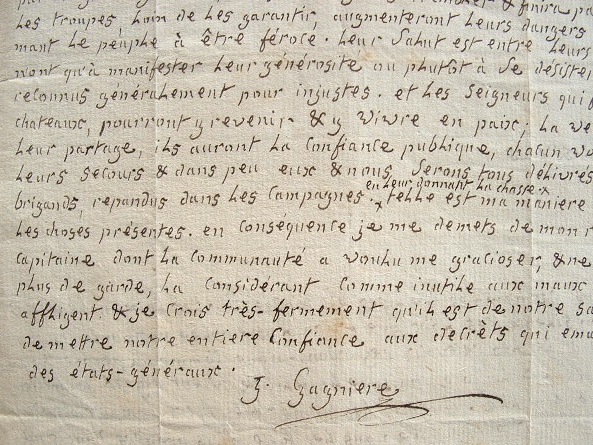 les troupes, loin de les garantir, augmenteront leurs dangers
mant le peuple à être féroce. leur salut est entre leurs
n'ont qu'à manifester leur générosité ou plutôt à se désister
reconnus généralement pour injustes. et les seigneurs qui
chateaux, pourront y revenir & y vivre en paix; la
leur partage, ils auront la confiance publique, chacun
leurs secours & dans peu eux & nous, serons tous délivrés
en leur donnant la chasse x
brigands, repandus dans les campagnes. x telle est ma maniere
les choses présentes. en conséquence je me demets de mon
capitaine dont la communauté a voulu me gracioser, & ne
plus de garde, la considérant comme inutile aux maux
affligent & je crois très-fermement qu'il est de notre
de mettre notre entiere confiance aux decrèts qui
des états-généraux.
Gagniere